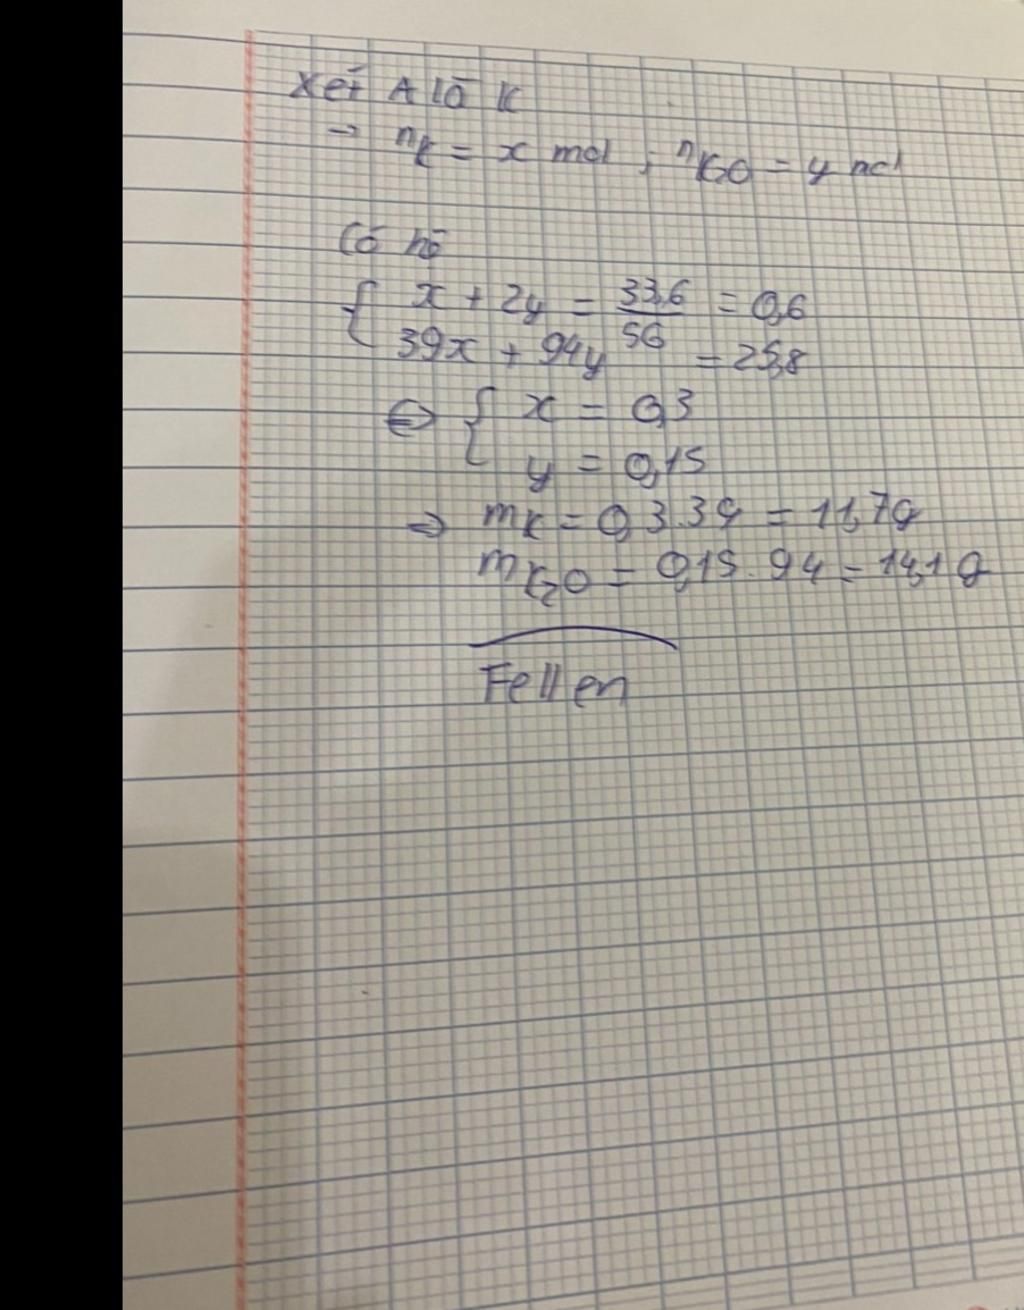 Xét A là K
→ nK = x mol ; nK2O = y mol
Có hệ
{ x + 2y = 33,6/56 = 0,6
39x + 94y = 25,8
⇔ { x = 0,3
y = 0,15
⇒ mK = 0,3.39 = 11,7g
mK2O = 0,15.94 = 14,1g
Fellen